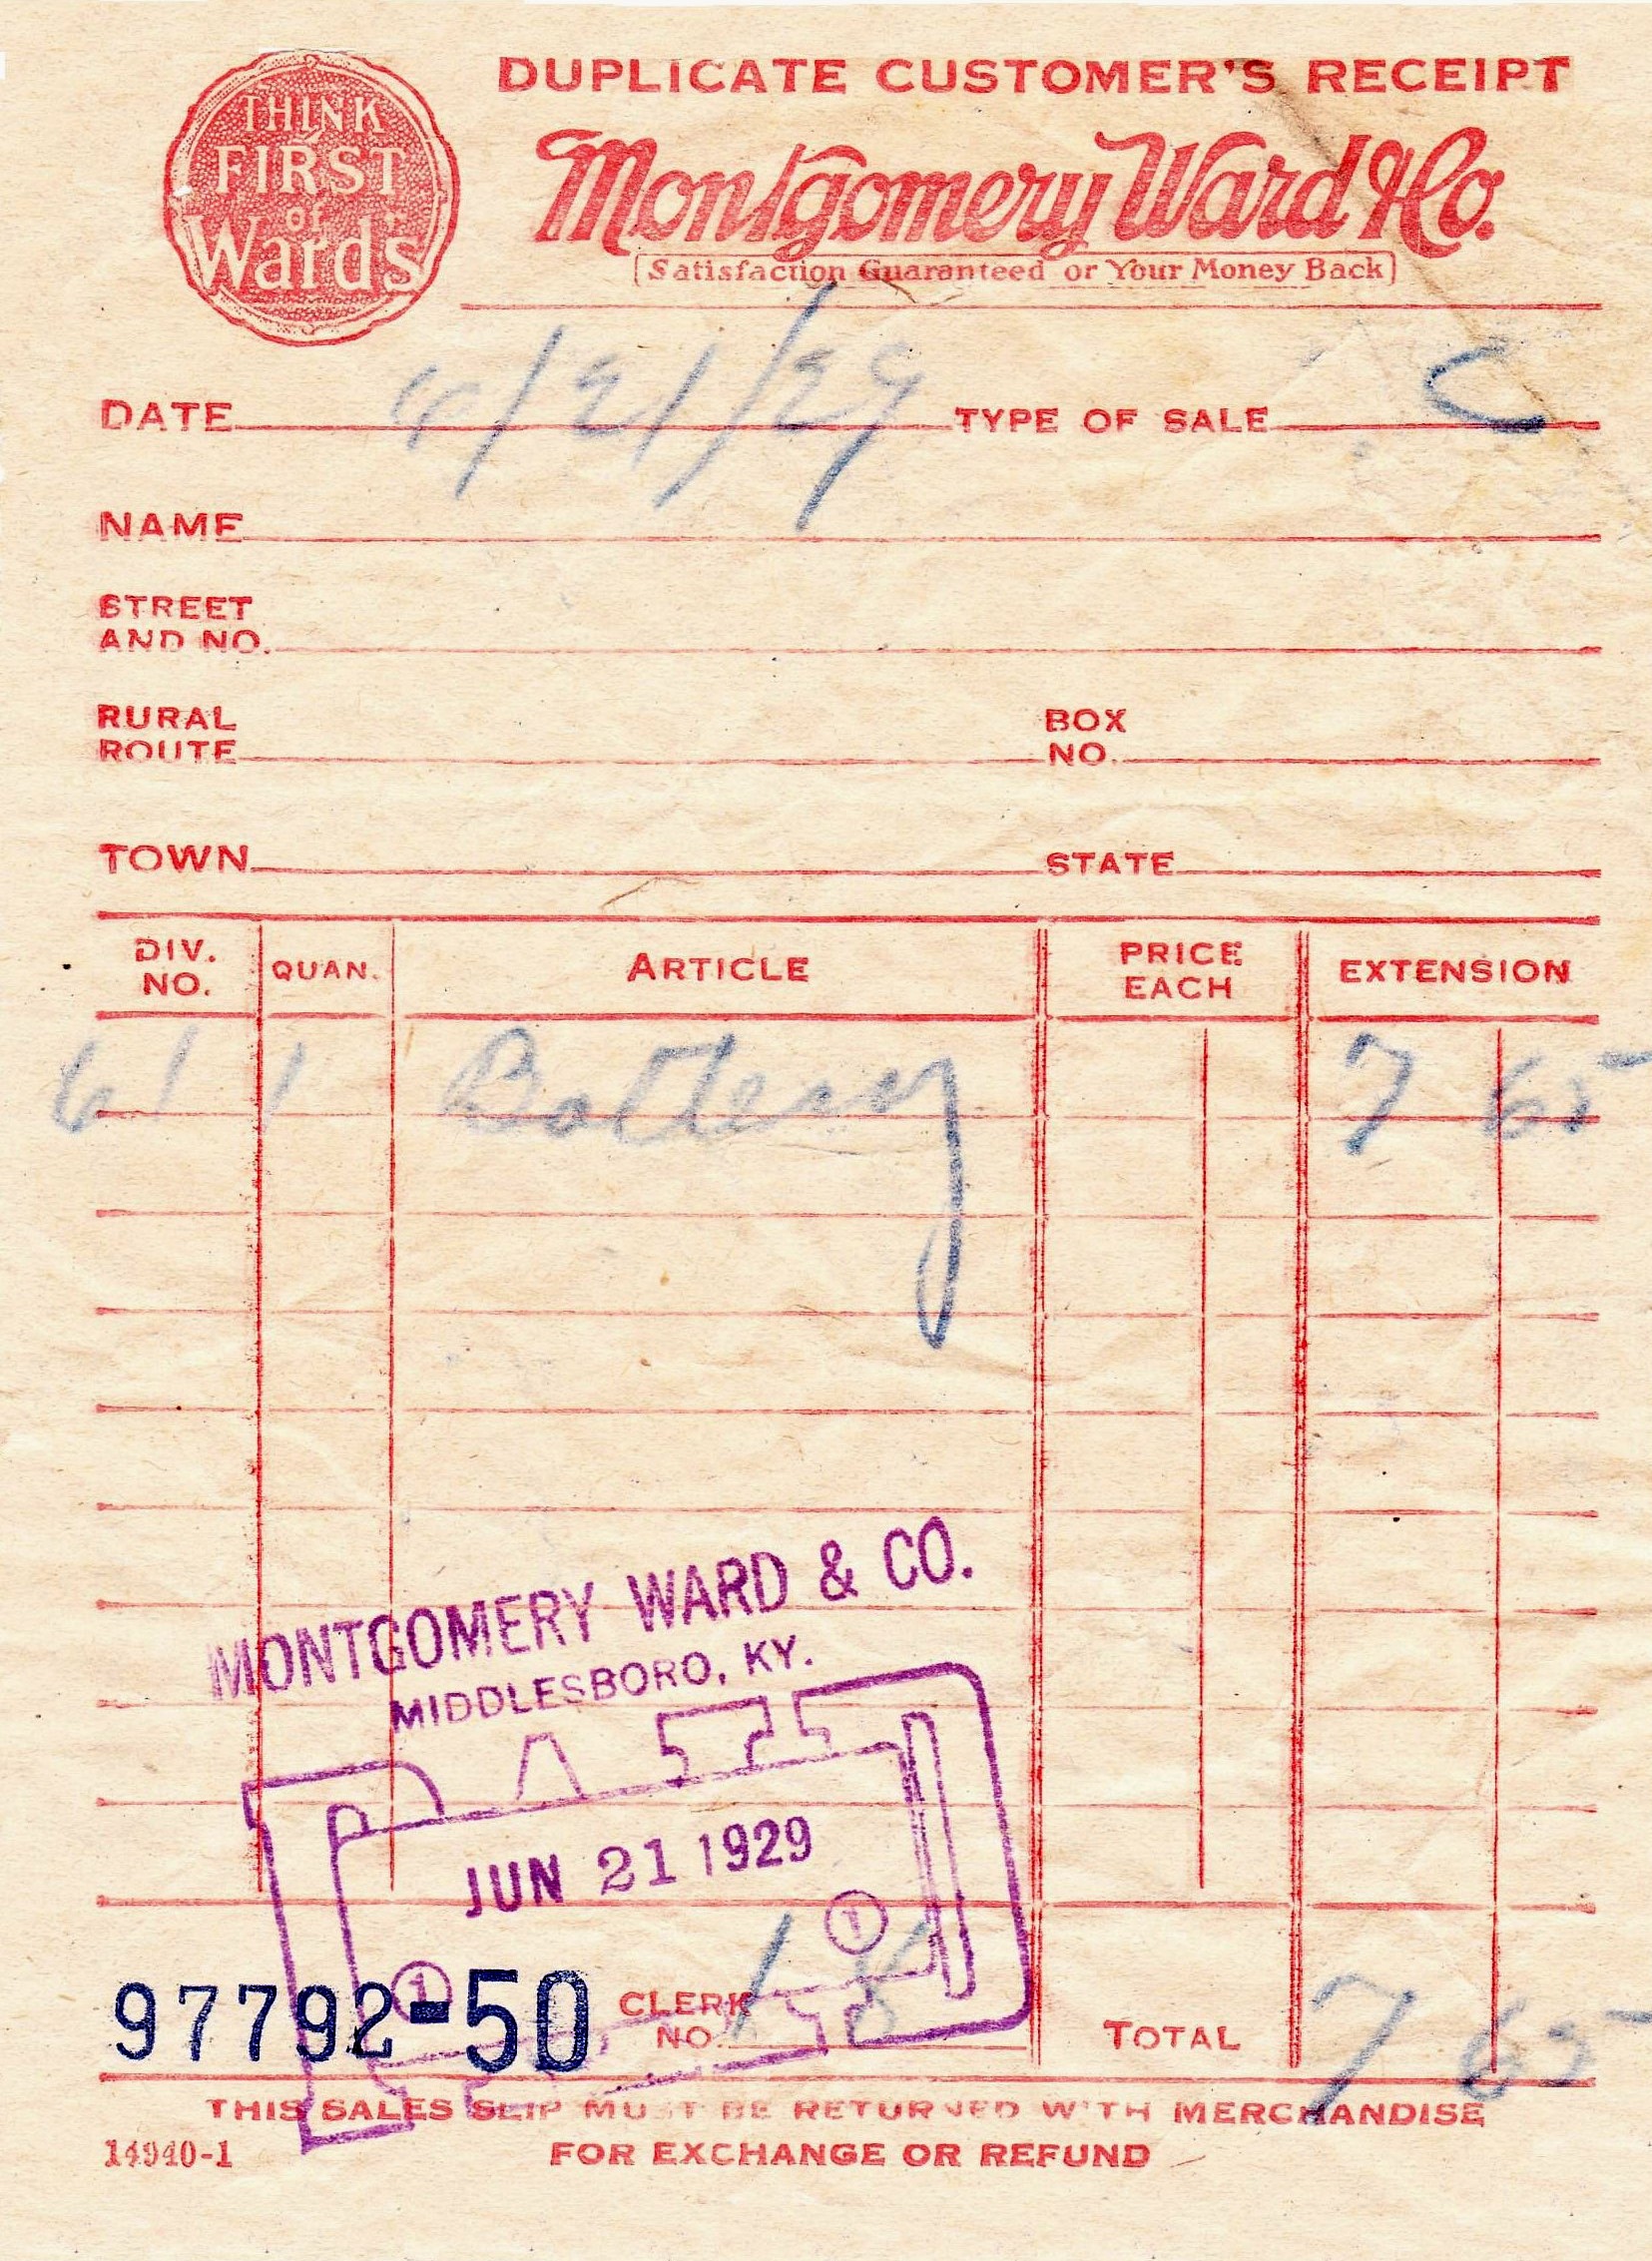 THINK
FIRST
of
Wards
DUPLICATE CUSTOMER'S RECEIPT
Montgomery Ward & Co.
Satisfaction Guaranteed or Your Money Back
DATE 6/21/29 TYPE OF SALE C
NAME
STREET
AND NO.
RURAL
ROUTE
BOX
NO.
TOWN STATE
DIV. NO. QUAN. ARTICLE PRICE EACH EXTENSION
61 1 Battery 7 65
MONTGOMERY WARD & CO.
MIDDLESBORO, KY.
JUN 21 1929
1
1
97792-50 CLERK NO. 18 TOTAL 7 65
THIS SALES SLIP MUST BE RETURNED WITH MERCHANDISE
14940-1 FOR EXCHANGE OR REFUND